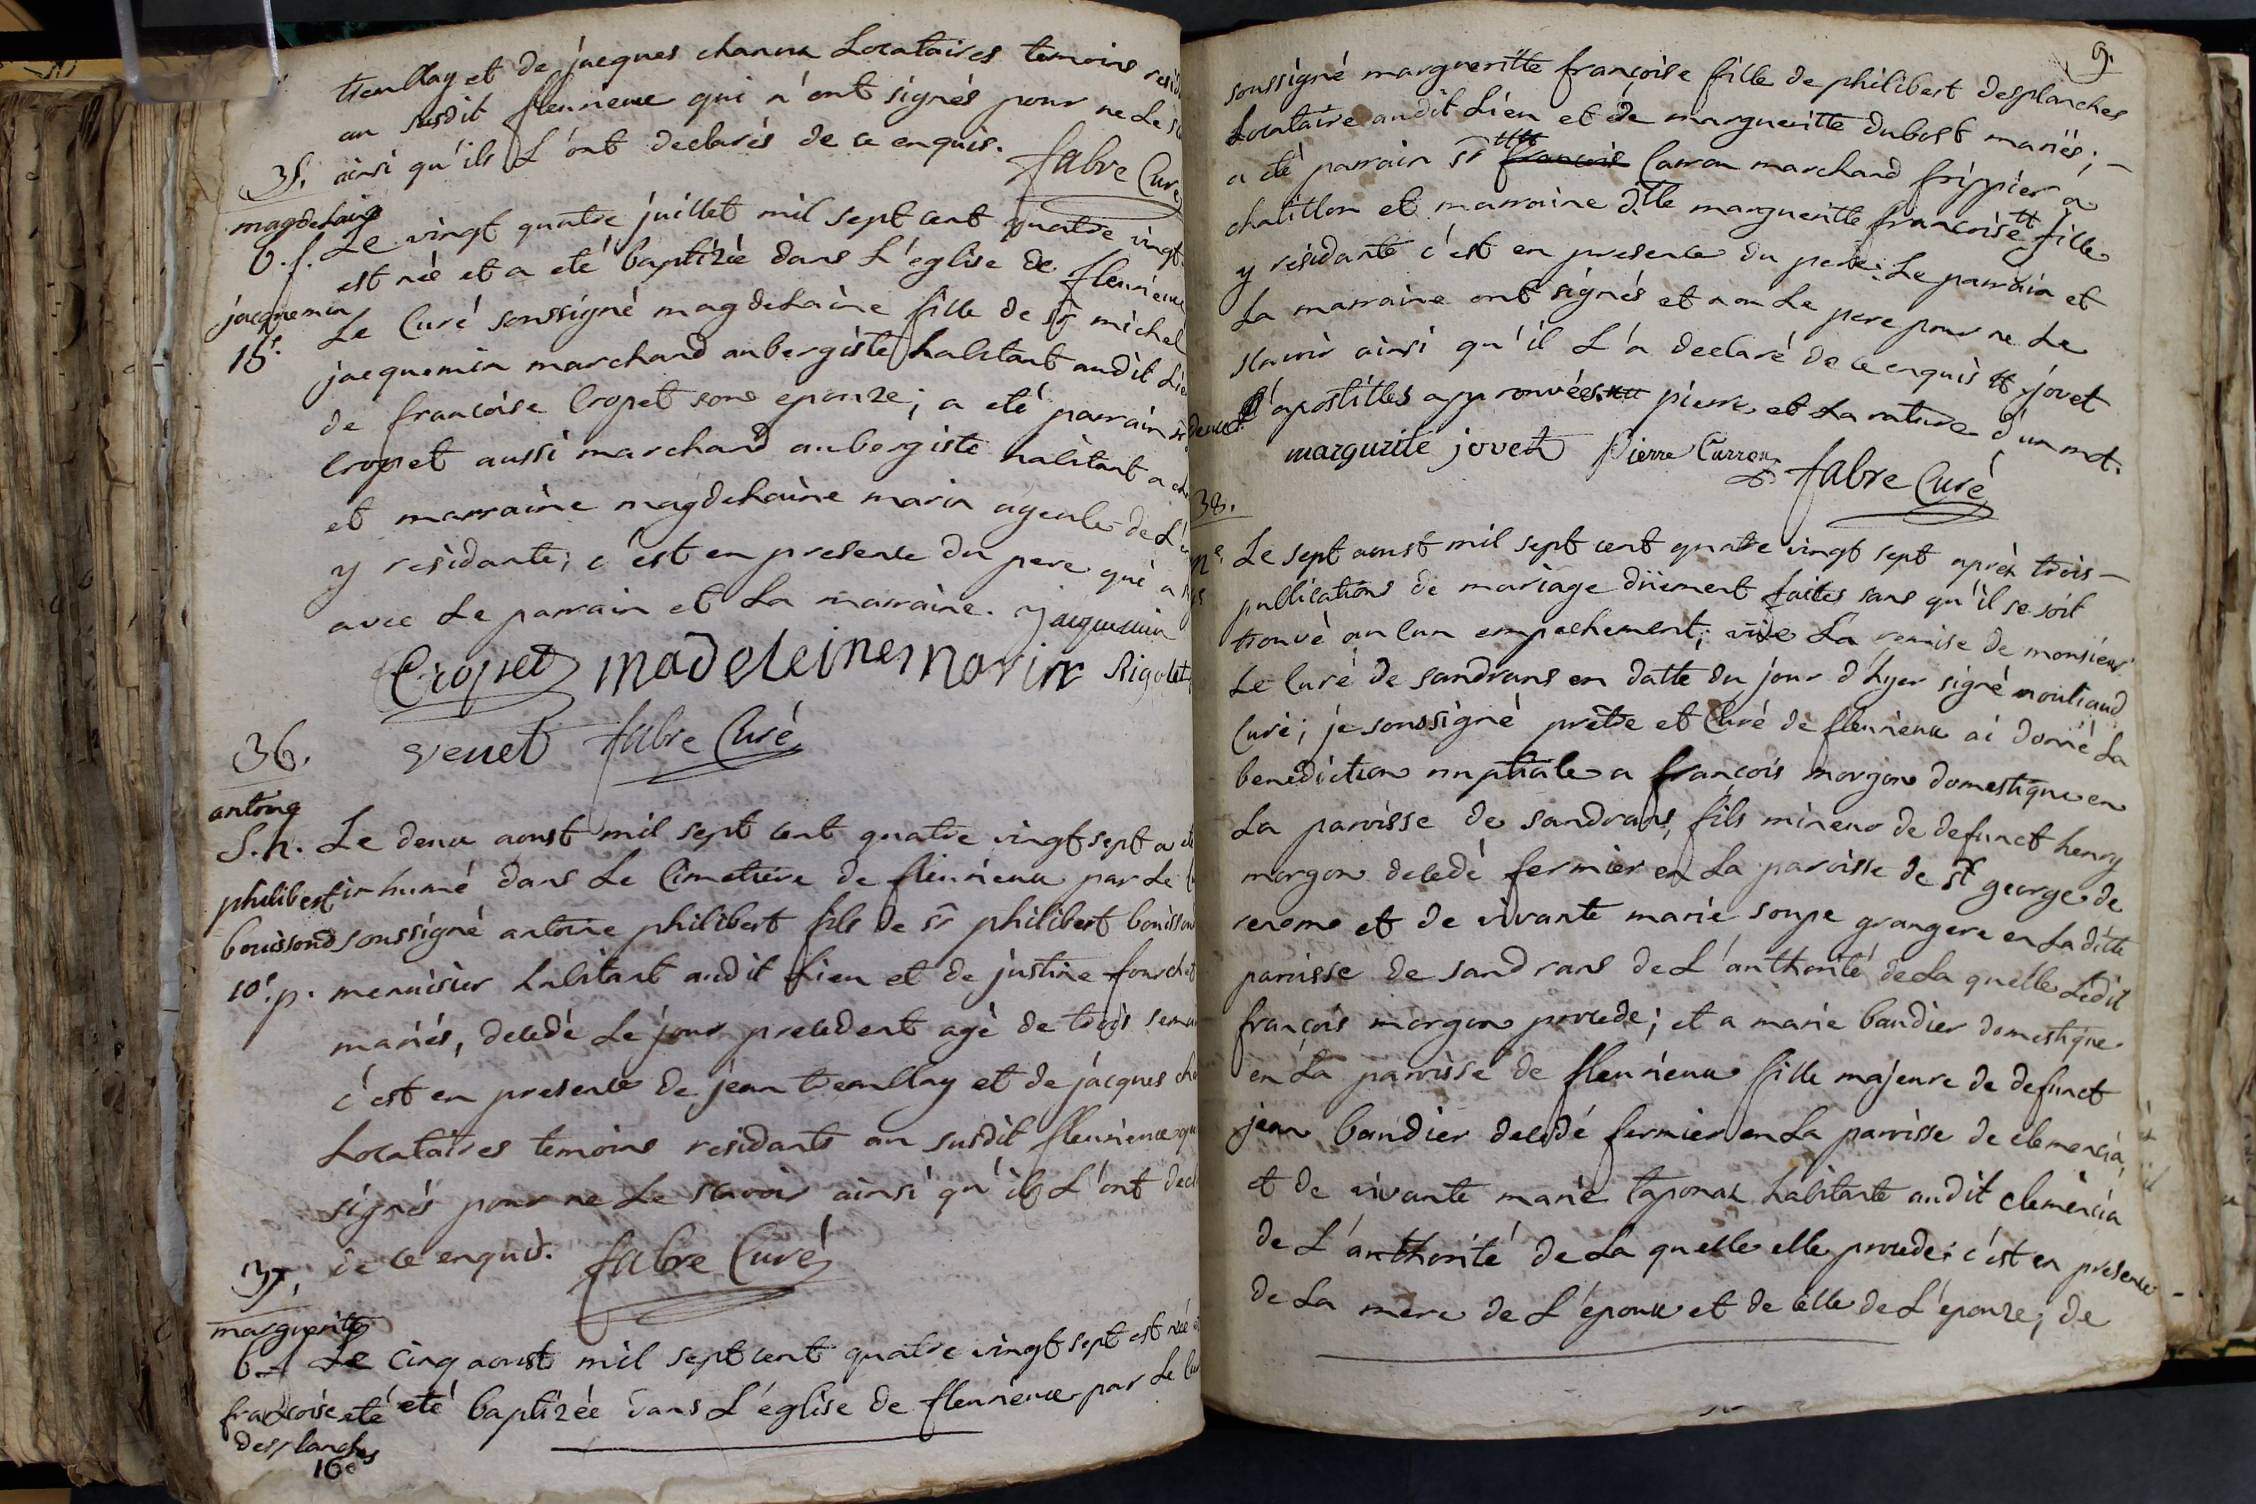 trembllay et de jacques chanux Locataires temoins resid
au susdit fleurieux qui n'ont signés pour ne Le s
ainsi qu'ils L'ont declarés de ce enquis. fabre Curé
35.
magdelaine
b. f.
jacquemin
15e.
Le vingt quatre juillet mil sept cent quatre vingt
est née et a eté baptizée dans L'eglise de fleurieux
Le Curé soussigné magdelaine fille de sr michel
jacquemin marchand aubergiste habitant audit Lie
de francoise Cropet son epouze; a eté parrain sr
Cropet aussi marchand aubergiste habitant a ch
et marraine magdelaine marin ayeule de L'
y residante; c'est en presence du pere qui a s
avec Le parrain et La marraine. jacquemin
Cropet madeleine marin Rigolet
venet fabre Curé
36.
antoine
S. n.
philibert
bouissond
10e. p.
Le deux aoust mil sept cent quatre vingt sept a eté
inhumé dans Le Cimetiere de fleurieux par Le
soussigné antoine philibert fils de sr philibert bouisson
menuisier habitant audit Lieu et de justine fourch
mariés, decedé Le jour precedent agé de trois sema
c'est en presence de jean trembllay et de jacques cha
Locataires temoins residants au susdit fleurieux qu
signés pour ne Le scavoir ainsi qu'ils L'ont decl
de ce enquis. fabre Curé
37.
marguerite
b. f.
francoise
desplanches
16e
Le cinq aoust mil sept cent quatre vingt sept est née
et a eté baptizée dans L'église de fleurieux par Le Cu
9.
soussigné margueritte françoise fille de philibert desplanches
Locataire audit Lieu et de margueritte dubost mariés;
a eté parrain sr francois Carron marchand frippier a
chatillon et marraine dlle margueritte francoise fille
y residante c'est en presence du pere. Le parrain et
La marraine ont signés et non Le pere pour ne Le
scavoir ainsi qu'il L'a declaré de ce enquis jovet
deux apostilles approuvées pierre et La rature d'un mot.
margurite jovet Pierre Carron
fabre Curé
38.
Me
Le sept aoust mil sept cent quatre vingt sept après trois
publications de mariage düement faites sans qu'il se soit
trouvé aucun empechement; vide La remise de monsieur
Le Curé de sandrans en datte du jour d'hyer signé mouliaud
Curé; je soussigné prêtre et Curé de fleurieux ai donné La
benediction nuptiale a françois morgon domestique en
La paroisse de sandrans, fils mineur de defunct henry
morgon decedé fermier en La paroisse de st george de
renom et de vivante marie soupe grangere en La ditte
paroisse de sandrans de L'authorité de La quelle Ledit
françois morgon procede; et a marie baudier domestique
en La paroisse de fleurieux fille majeure de defunct
jean baudier decedé fermier en La paroisse de clemencia,
et de vivante marie taponas habitante audit clemencia
de L'authorité de La quelle elle procede; c'est en presence
de La mere de L'epoux et de celle de L'epouze; de